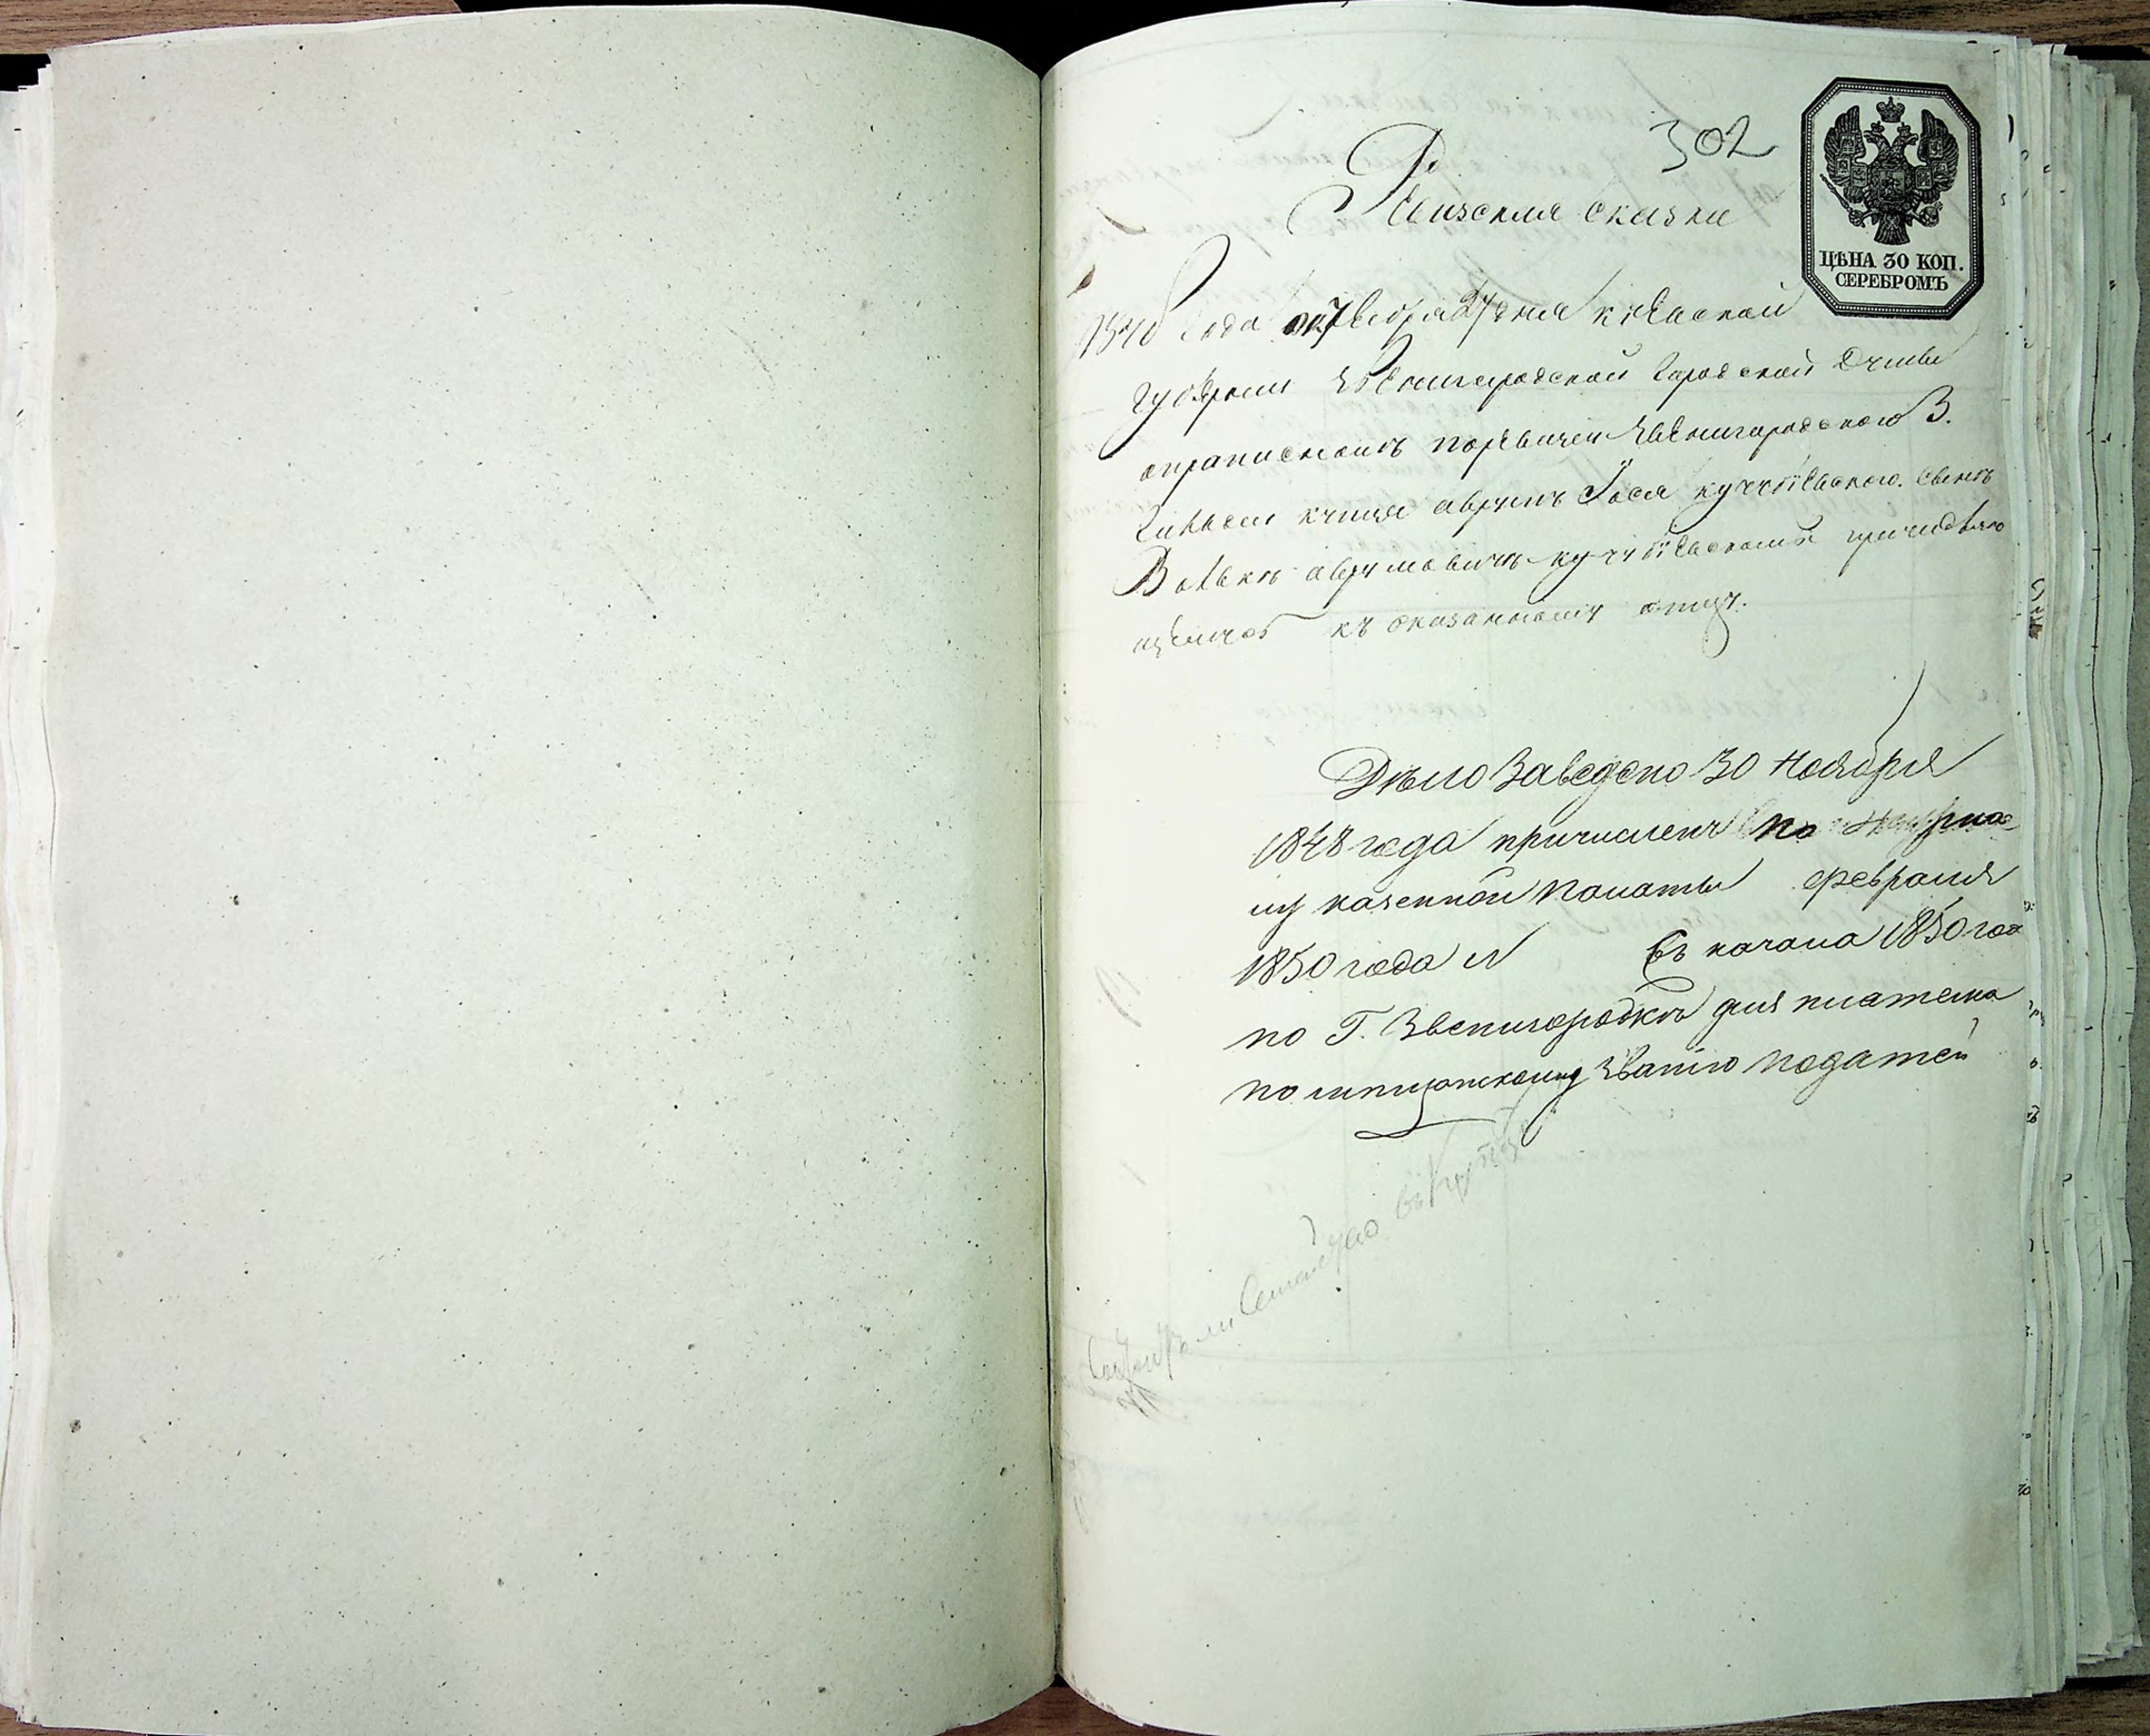 302
ЦѢНА 30 КОП.
СЕРЕБРОМЪ
Ревизская Сказка
1848 года октебра 27 дня кіевской
губерніи Звенигородской Городской Думы
о приписномъ по ревизіи Звенигородского 3.
Гильдіи купца аврумъ Іося сынъ
Волько аврумовичъ
къ оказанному отцу.
Дѣло заведено 30 Ноября
1848 года причисленъ по журна
лу казенной палаты февраля
1850 года № Съ начала 1850 года
по Г. Звенигородкѣ для платежа
по мѣщанскому званію податей
въ